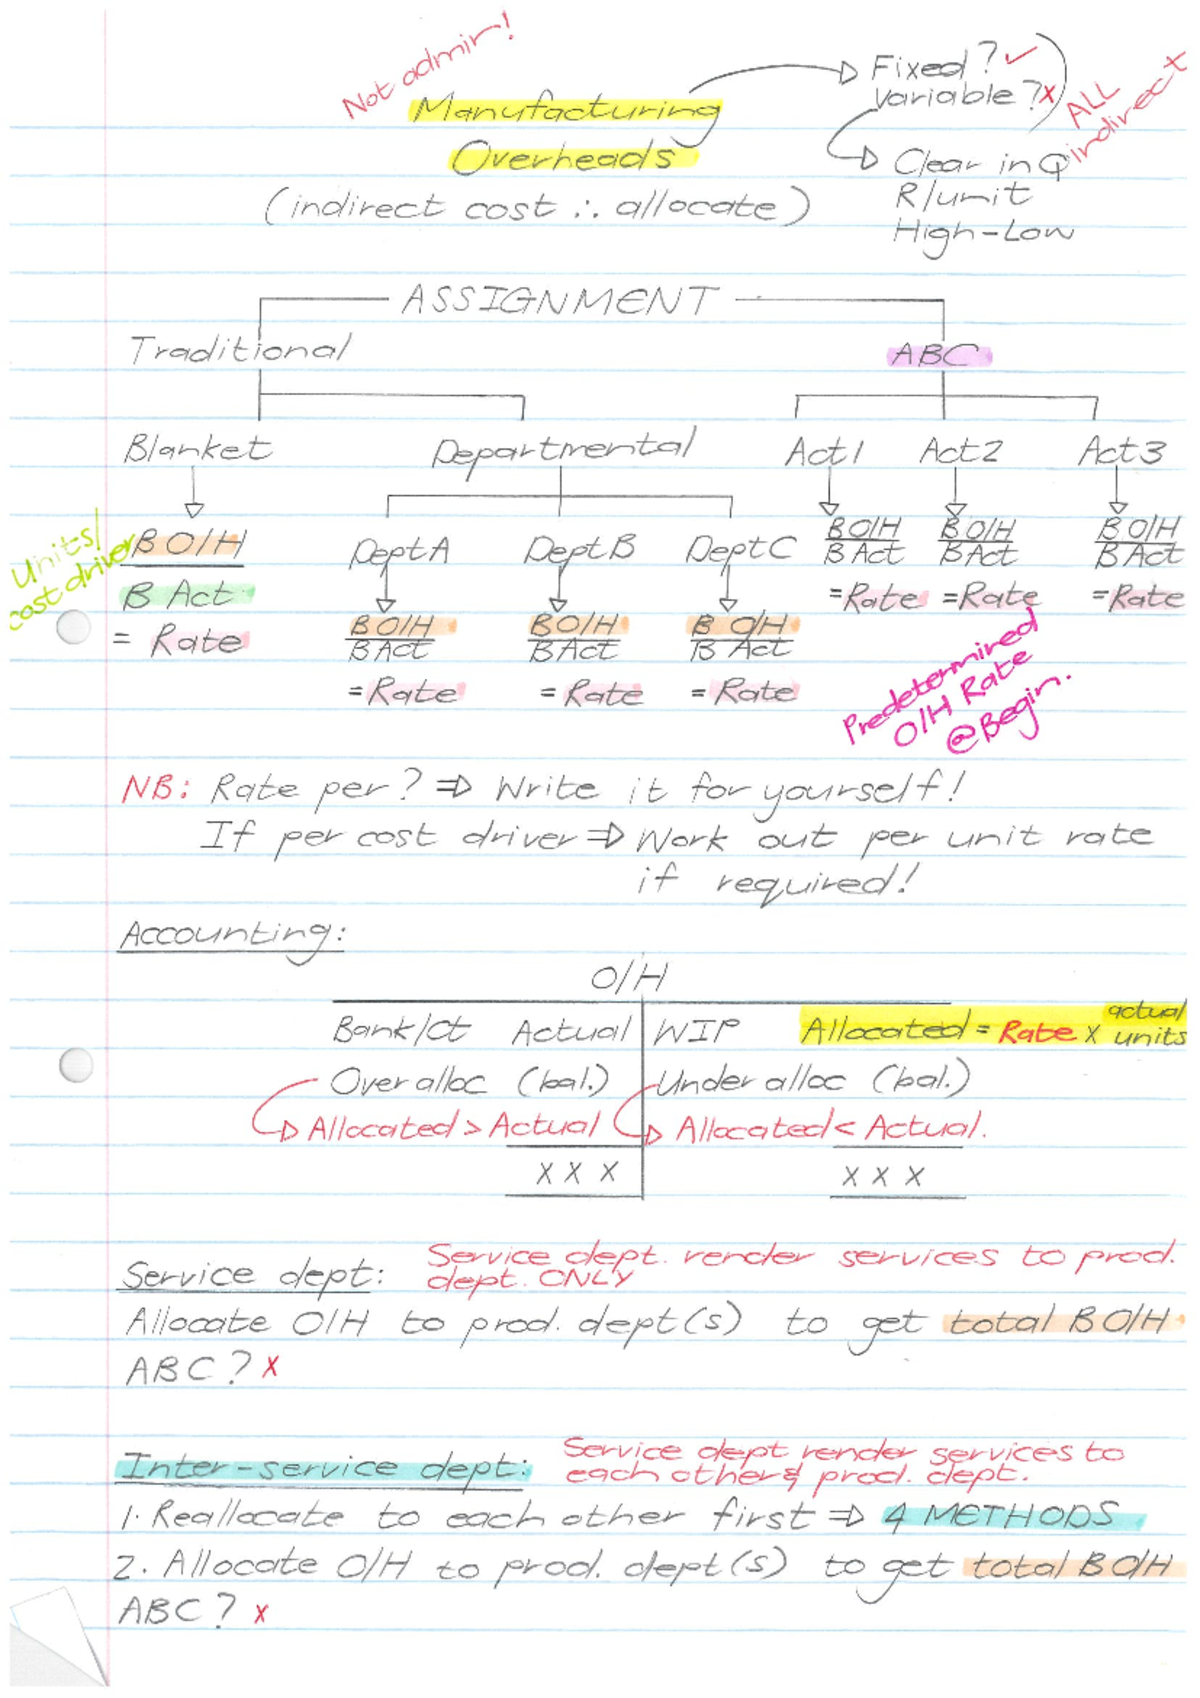 Not admin!
Manufacturing
Overheads
(indirect cost ∴ allocate)
Fixed? ✓
Variable? x
ALL indirect
Clear in Q
R/unit
High-Low
ASSIGNMENT
Traditional ABC
Blanket Departmental Act 1 Act 2 Act 3
Units/
cost driver
B O/H
B Act
= Rate
Dept A Dept B Dept C
B O/H B O/H B O/H
B Act B Act B Act
= Rate = Rate = Rate
B O/H B O/H B O/H
B Act B Act B Act
= Rate = Rate = Rate
Predetermined
O/H Rate
@Begin.
NB: Rate per? ⇒ Write it for yourself!
If per cost driver ⇒ Work out per unit rate
if required!
Accounting:
O/H
Bank/Ct Actual WIP Allocated = Rate x actual units
Over alloc (bal.) Under alloc (bal.)
Allocated > Actual Allocated < Actual.
X X X X X X
Service dept: Service dept. render services to prod.
dept. ONLY
Allocate O/H to prod. dept(s) to get total B O/H
ABC? x
Inter-service dept: Service dept render services to
each other & prod. dept.
1. Reallocate to each other first ⇒ 4 METHODS
2. Allocate O/H to prod. dept(s) to get total B O/H
ABC? x